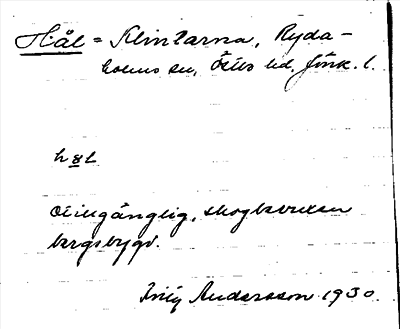 Hål = Klintarna, Ryda-
holms sn, Östbo hd. Jönk. l.
hɑl
Otillgänglig, skogbevuxen
bergsbygd.
Andersson 1930.